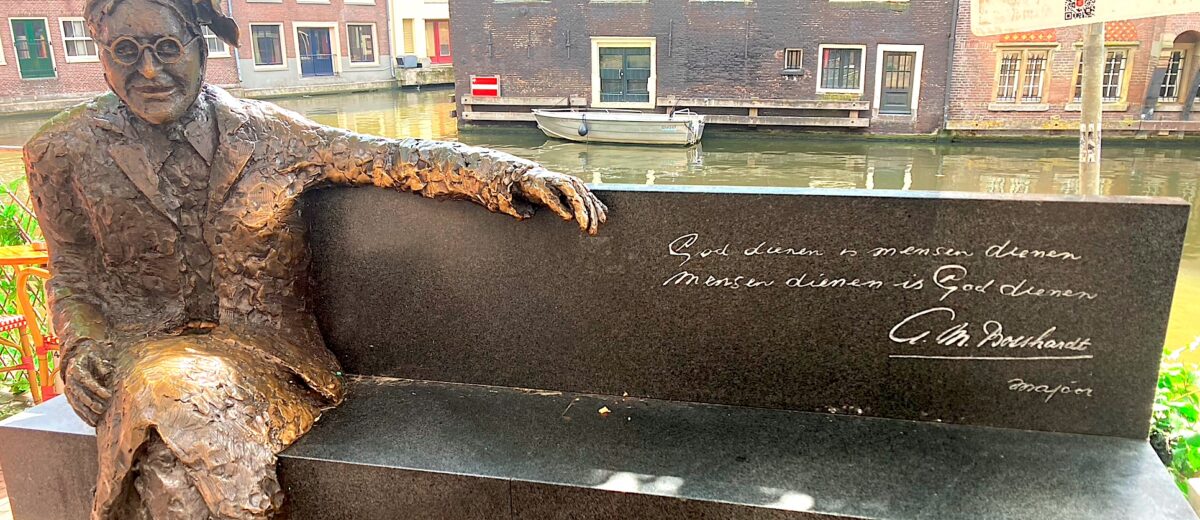 God dienen is mensen dienen
mensen dienen is God dienen
A. M. Bosshardt
majoor